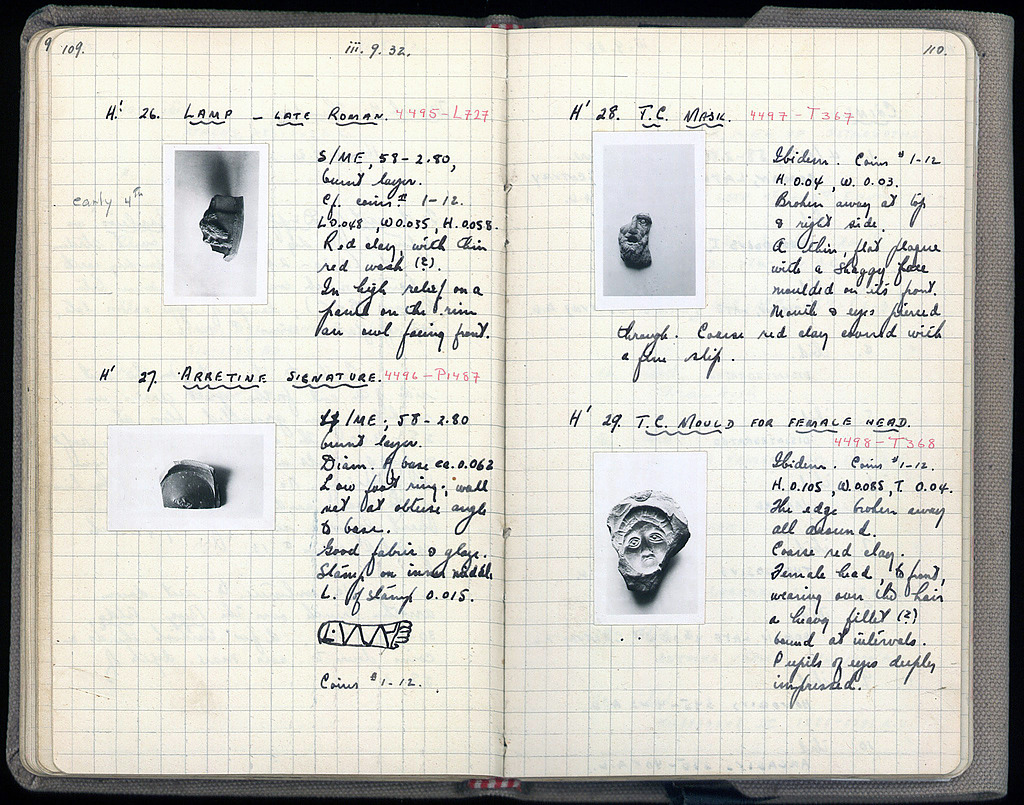 9 109.
iii. 9. 32.
H' 26. LAMP - LATE ROMAN. 4495-L727
early 4th
S/ME, 58-2.80,
burnt layer.
Cf. coins # 1-12.
L 0.048, W 0.035, H. 0.058.
Red clay, with thin
red wash (?).
In high relief on a
panel on the rim
an owl facing front.
H' 27. ARRETINE SIGNATURE. 4496-P1487
/ME, 58-2.80
burnt layer.
Diam. of base ca. 0.062
Low foot ring; wall
set at obtuse angle
to base.
Good fabric & glaze.
Stamp on inner middle
L. of stamp 0.015.
Coins # 1-12.
110.
H' 28. T.C. MASK. 4497-T367
Ibidem. Coins # 1-12
H. 0.04, W. 0.03.
Broken away at top
& right side.
A thin, flat plaque
with a shaggy face
moulded on its front.
Mouth & eyes pierced
through. Coarse red clay covered with
a fine slip.
H' 29. T.C. MOULD FOR FEMALE HEAD.
4498-T368
Ibidem. Coins # 1-12.
H. 0.105, W. 0.085, T. 0.04.
The edge broken away
all around.
Coarse red clay.
Female head, to front,
wearing over the hair
a heavy fillet (?)
bound at intervals.
Pupils of eyes deeply
impressed.